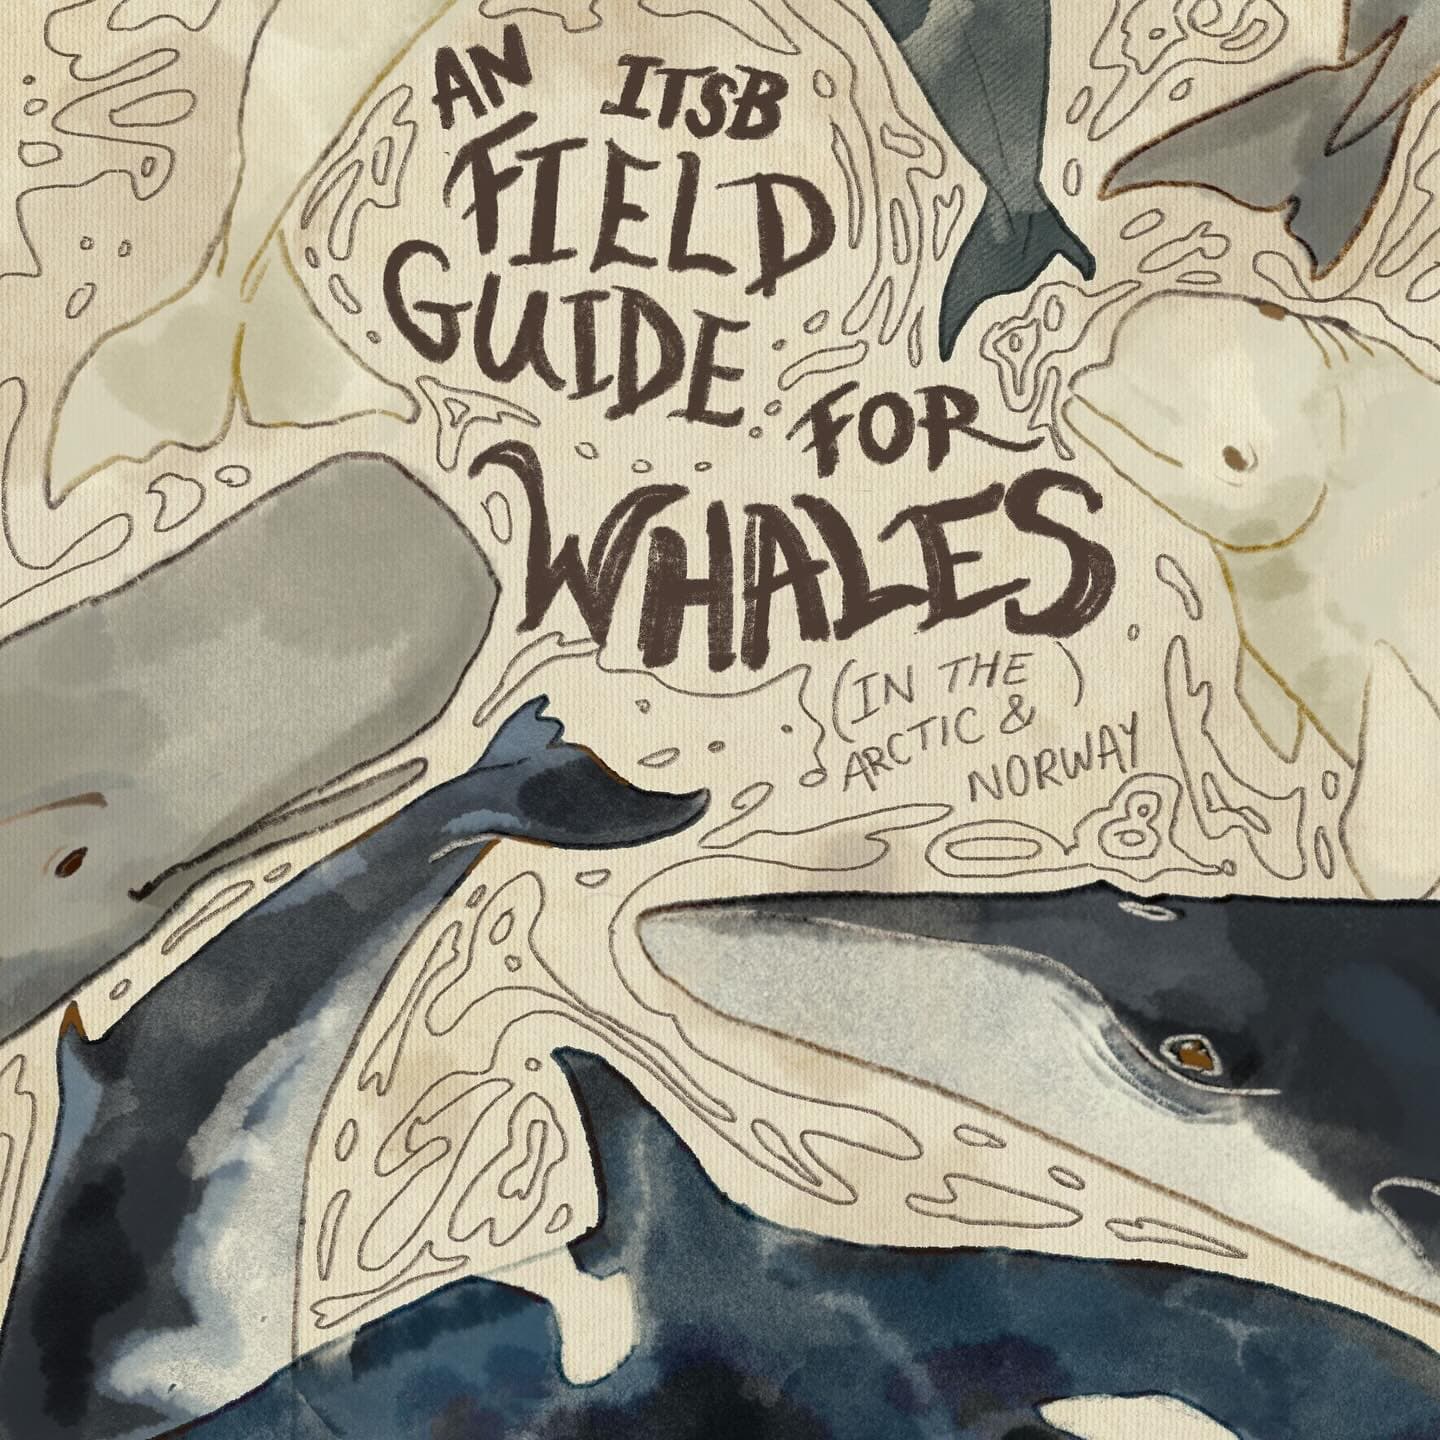 AN ITSB
FIELD
GUIDE
FOR
WHALES
(IN THE)
ARCTIC &
NORWAY